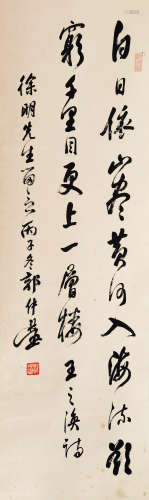 白日依山盡黃河入海流欲
窮千里目更上一層樓王之渙詩
徐明先生留念丙子冬郭仲選